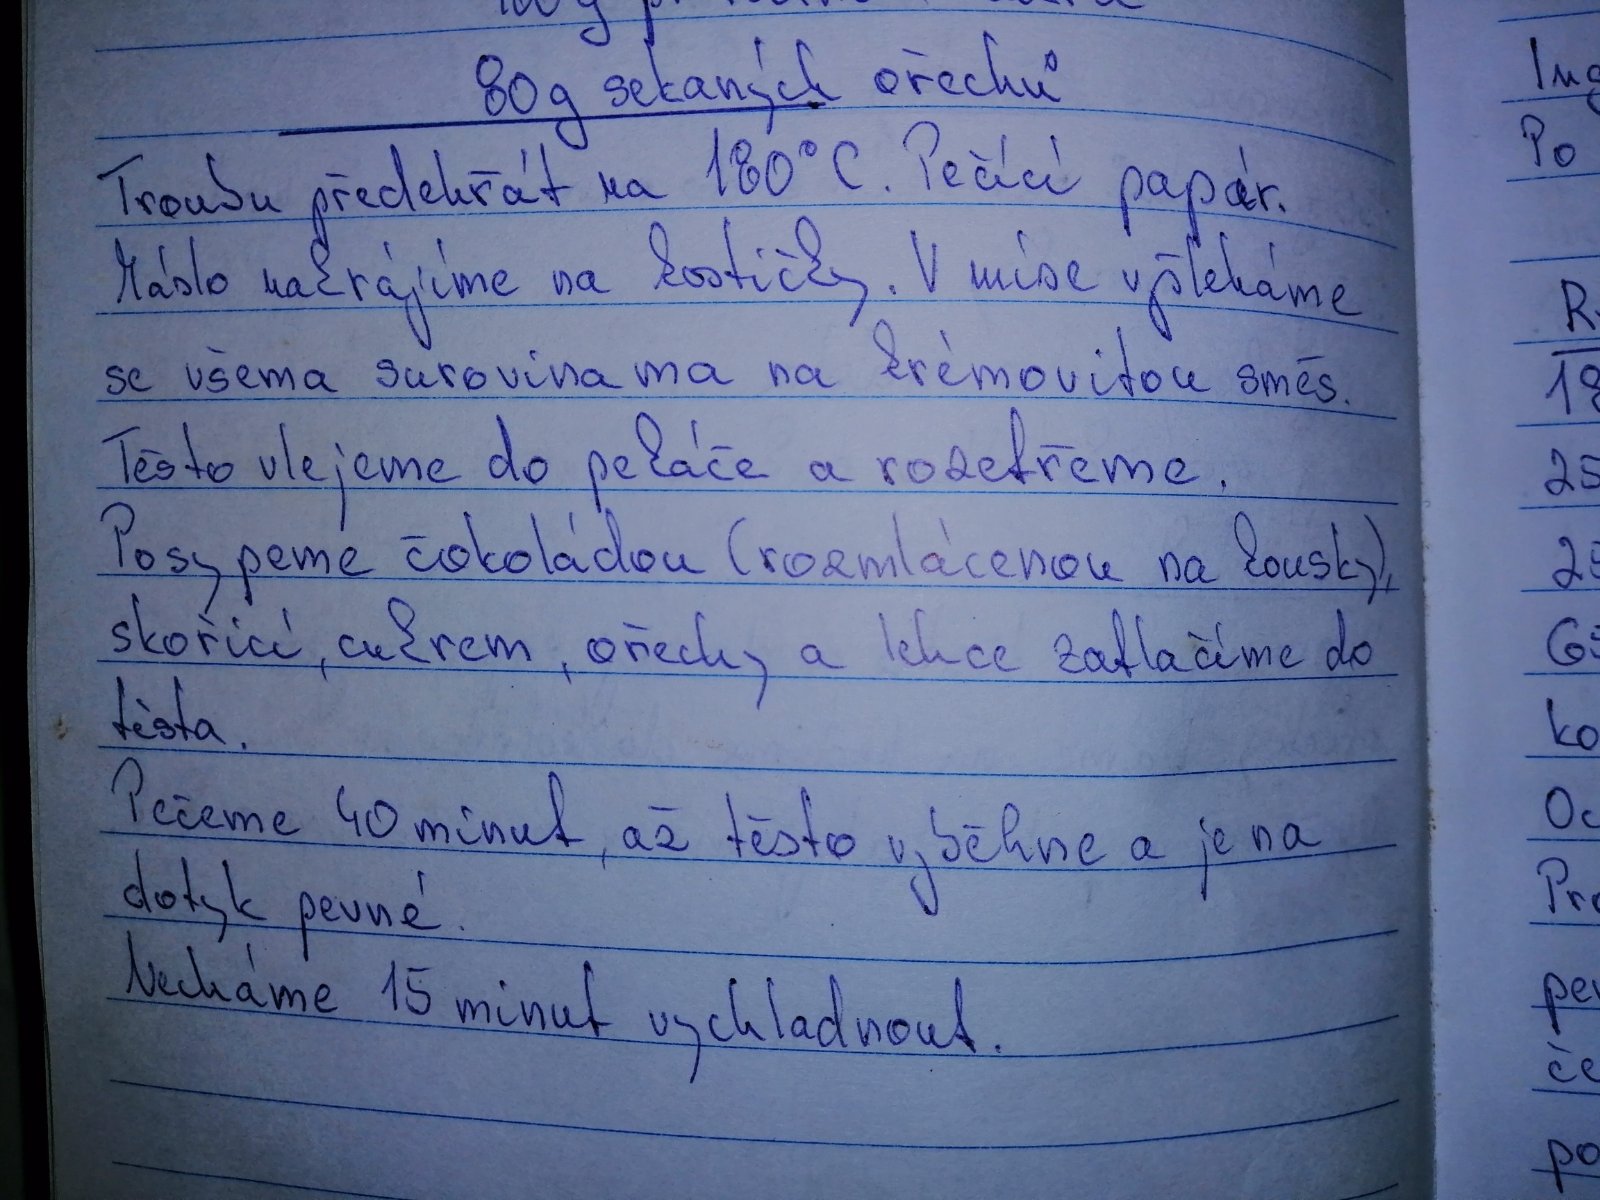 80g sekaných ořechů
Troubu předehřát na 180°C. Pečící papír.
Máslo nakrájíme na kostičky. V míse vyšleháme
se všema surovinama na krémovitou směs.
Těsto vlejeme do pekáče a rozetřeme.
Posypeme čokoládou (rozmlácenou na kousky),
skořicí, cukrem, ořechy a lehce zatlačíme do
těsta.
Pečeme 40 minut, až těsto vyběhne a je na
dotyk pevné.
Necháme 15 minut vychladnout.
Po